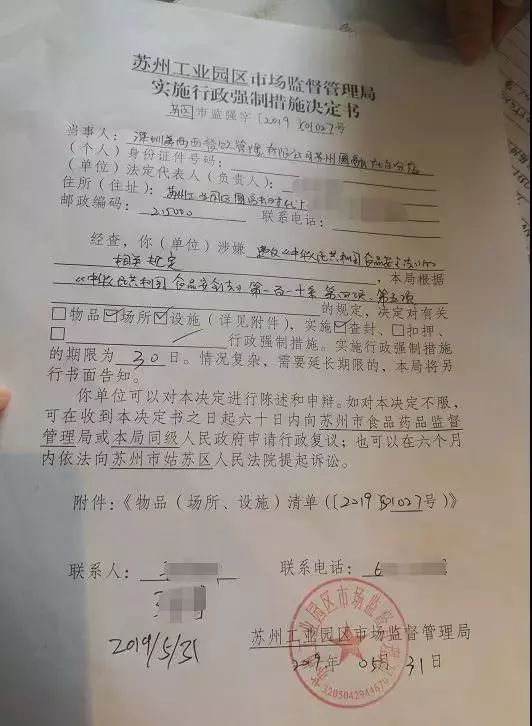 苏州工业园区市场监督管理局
实施行政强制措施决定书
苏园市监强字〔2019〕501027号
当事人：深圳 餐饮管理有限公司苏州圆融 店
（个人）身份证件号码：
（单位）法定代表人（负责人）：
住所（住址）：苏州工业园区圆融时代
邮政编码：215000 联系电话：
经查，你（单位）涉嫌 违反《中华人民共和国食品安全法》的
相关规定，本局根据
《中华人民共和国食品安全法》第一百一十条第四项、第五项
的规定，决定对有关
□物品☑场所☑设施（详见附件），实施☑查封、□扣押、
□ 行政强制措施。实施行政强制措施
的期限为 30 日。情况复杂，需要延长期限的，本局将另
行书面告知。
你单位可以对本决定进行陈述和申辩。如对本决定不服，
可在收到本决定书之日起六十日内向苏州市食品药品监督
管理局或本局同级人民政府申请行政复议；也可以在六个月
内依法向苏州市姑苏区人民法院提起诉讼。
附件：《物品（场所、设施）清单（〔2019〕501027号）》
联系人： 联系电话：6
2019/5/31
苏州工业园区市场监督管理局
2019年 05月 31日
苏州工业园区市场监督管理局
3205042944670